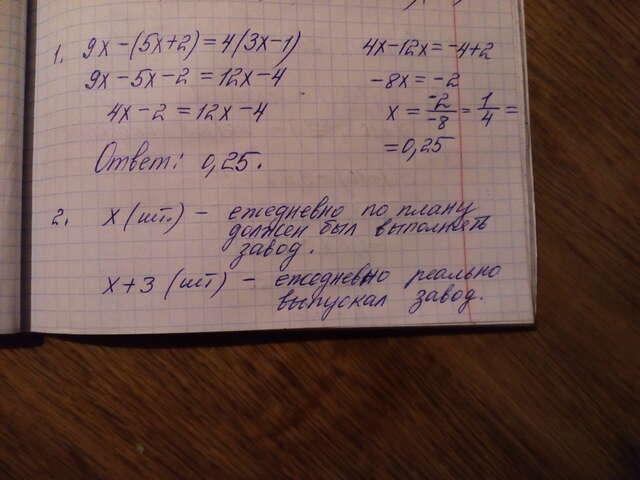 1. 9x-(5x+2)=4(3x-1)
9x-5x-2=12x-4
4x-2=12x-4
4x-12x=-4+2
-8x=-2
x=\frac{-2}{-8}=\frac{1}{4}=
=0,25
Ответ: 0,25.
2. x (шт.) - ежедневно по плану
должен был выполнять
завод.
x+3 (шт) - ежедневно реально
выпускал завод.